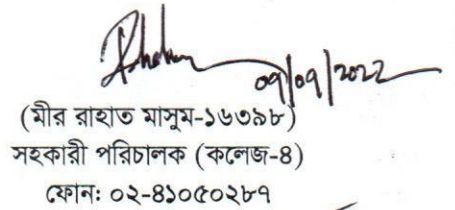 ০৭/০৭/২০২২
(মীর রাহাত মাসুম-১৬৩৯৮)
সহকারী পরিচালক (কলেজ-৪)
ফোন: ০২-৪১০৫০২৮৭